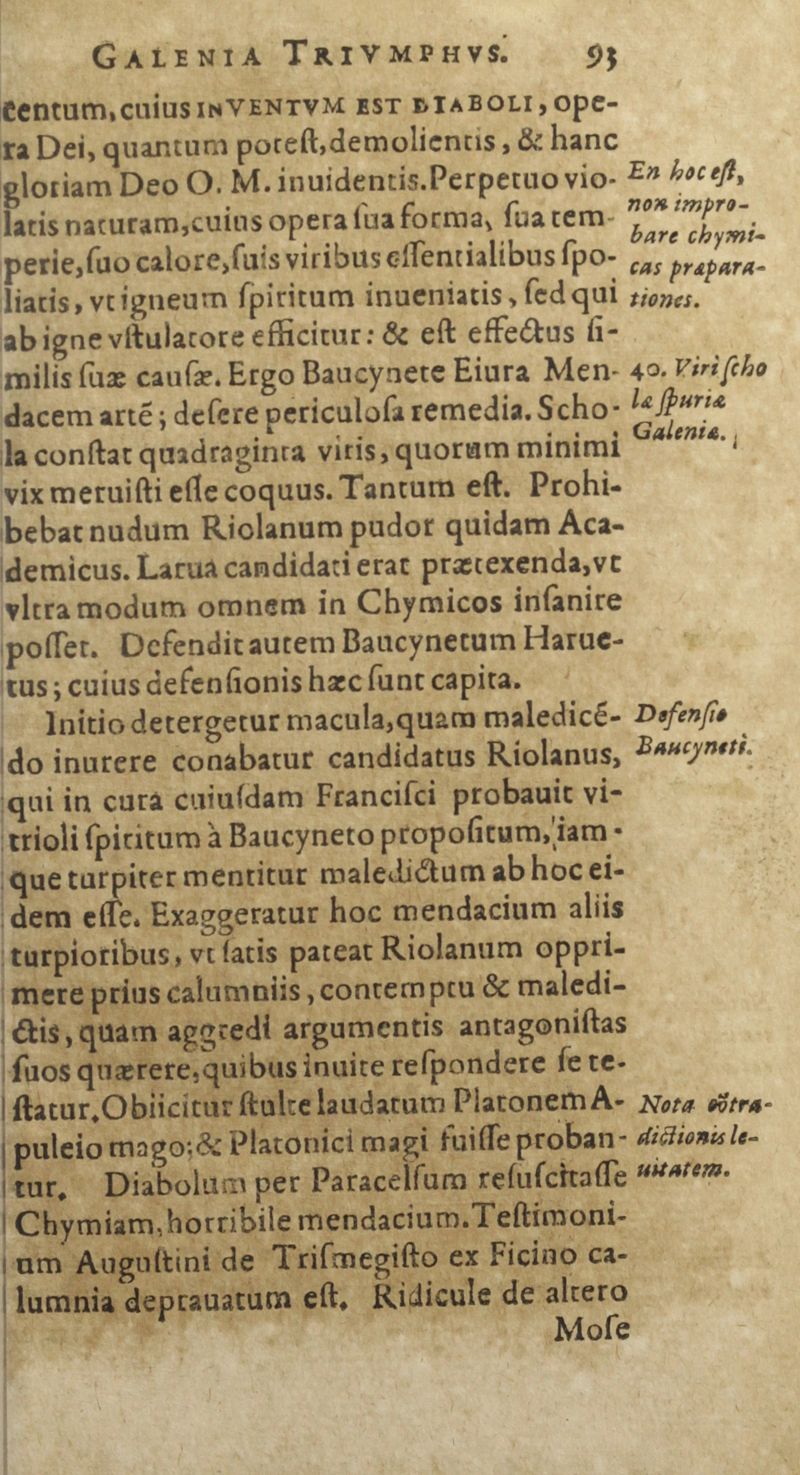 GALENIA TRIVMPHVS. 93
centum, cuius INVENTVM EST DIABOLI, ope-
ra Dei, quantum poteſt, demolientis, & hanc
gloriam Deo O. M. inuidentis. Perpetuo vio-
latis naturam, cuius opera ſua forma, ſua tem-
perie, ſuo calore, ſuis viribus eſſentialibus ſpo-
liatis, vt igneum ſpiritum inueniatis, ſed qui
ab igne vſtulatore efficitur: & eſt effectus ſi-
milis ſuæ cauſæ. Ergo Baucynete Eiura Men-
dacem arté; deſere periculoſa remedia. Scho-
la conſtat quadraginta viris, quorum minimi
vix meruiſti eſſe coquus. Tantum eſt. Prohi-
bebat nudum Riolanum pudor quidam Aca-
demicus. Larua candidati erat prætexenda, vt
vltra modum omnem in Chymicos inſanire
poſſet. Defendit autem Baucynetum Harue-
tus; cuius defenſionis hæc ſunt capita.
Initio detergetur macula, quam maledicé-
do inurere conabatur candidatus Riolanus,
qui in cura cuiuſdam Franciſci probauit vi-
trioli ſpiritum à Baucyneto propoſitum, iam-
que turpiter mentitur maledictum ab hoc ei-
dem eſſe. Exaggeratur hoc mendacium aliis
turpioribus, vt ſatis pateat Riolanum oppri-
mere prius calumniis, contemptu & maledi-
ctis, quam aggredi argumentis antagoniſtas
ſuos quærere, quibus inuite reſpondere ſe te-
ſtatur. Obiicitur ſtulte laudatum Platonem A-
puleio mago; & Platonici magi fuiſſe proban-
tur. Diabolum per Paracelſum reſuſcitaſſe
Chymiam, horribile mendacium. Teſtimoni-
um Auguſtini de Triſmegiſto ex Ficino ca-
lumnia deprauatum eſt. Ridicule de altero
Moſe
En hoc eſt,
non impro-
bare chymi-
cas præpara-
tiones.
40. Viri ſcho
læ ſpuriæ
Galeniæ.
Defenſio
Baucyneti.
Nota cōtra-
dictionis le-
uitatem.